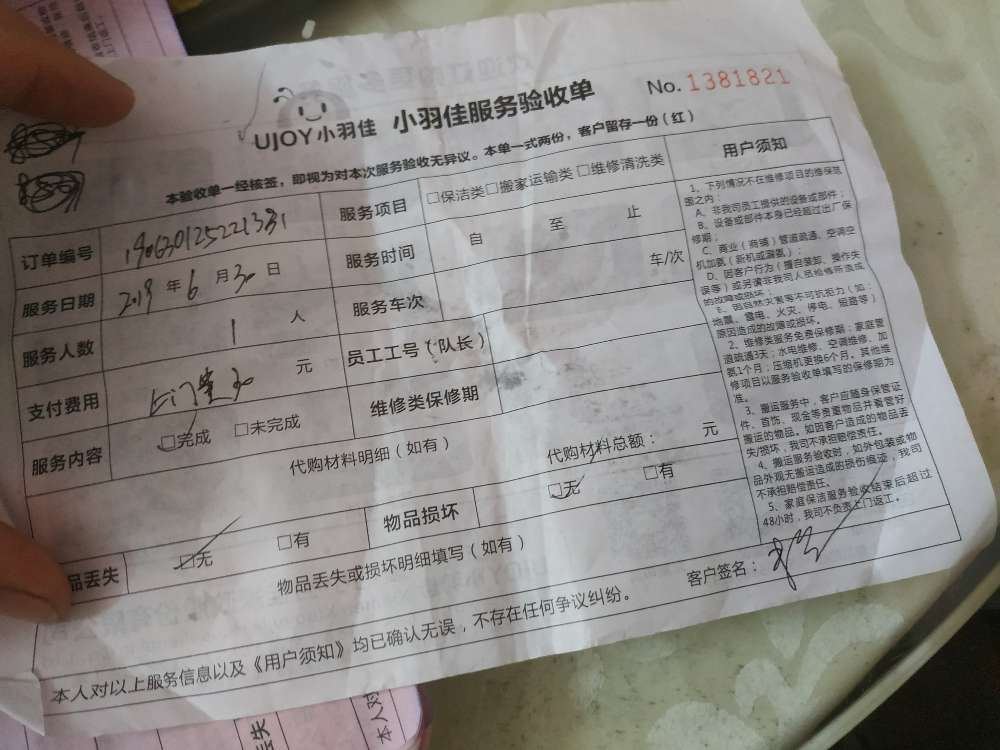 UJOY小羽佳 小羽佳服务验收单
No. 1381821
本验收单一经核签，即视为对本次服务验收无异议。本单一式两份，客户留存一份（红）
订单编号
服务项目 □保洁类□搬家运输类□维修清洗类
服务日期 2019 年 6 月 30 日
服务时间 自 至 止
服务人数 1 人
服务车次 车/次
支付费用 上门费30 元
员工工号（队长）
服务内容 □完成 □未完成
维修类保修期
代购材料明细（如有）
代购材料总额： 元
品丢失 □无 □有
物品损坏 □无 □有
物品丢失或损坏明细填写（如有）
用户须知
1、下列情况不在维修项目的维保范
围之内：
A、非我司员工提供的设备或部件；
B、设备或部件本身已经超过出厂保
修期；
C、商业（商铺）管道疏通、空调空
机加氨（新机或漏氨）；
D、因客户行为（擅自装卸、操作失
误等）或另请非我司人员检修所造成
的故障或损坏；
E、因自然灾害等不可抗拒力（如：
地震、雷电、火灾、停电、短路等）
原因造成的故障或损坏。
2、维修类服务免费保修期：家庭管
道疏通3天；水电维修、空调维修、加
氨1个月；压缩机更换6个月。其他维
修项目以服务验收单填写的保修期为
准。
3、搬运服务中，客户应随身保管证
件、首饰、现金等贵重物品并看管好
搬运的物品。如因客户造成的物品丢
失/损坏，我司不承担赔偿责任。
4、搬运服务验收时，如外包装或物
品外观无搬运造成的损伤痕迹，我司
不承担赔偿责任。
5、家庭保洁服务验收结束后超过
48小时，我司不负责上门返工。
本人对以上服务信息以及《用户须知》均已确认无误，不存在任何争议纠纷。 客户签名：
丢失
本人对